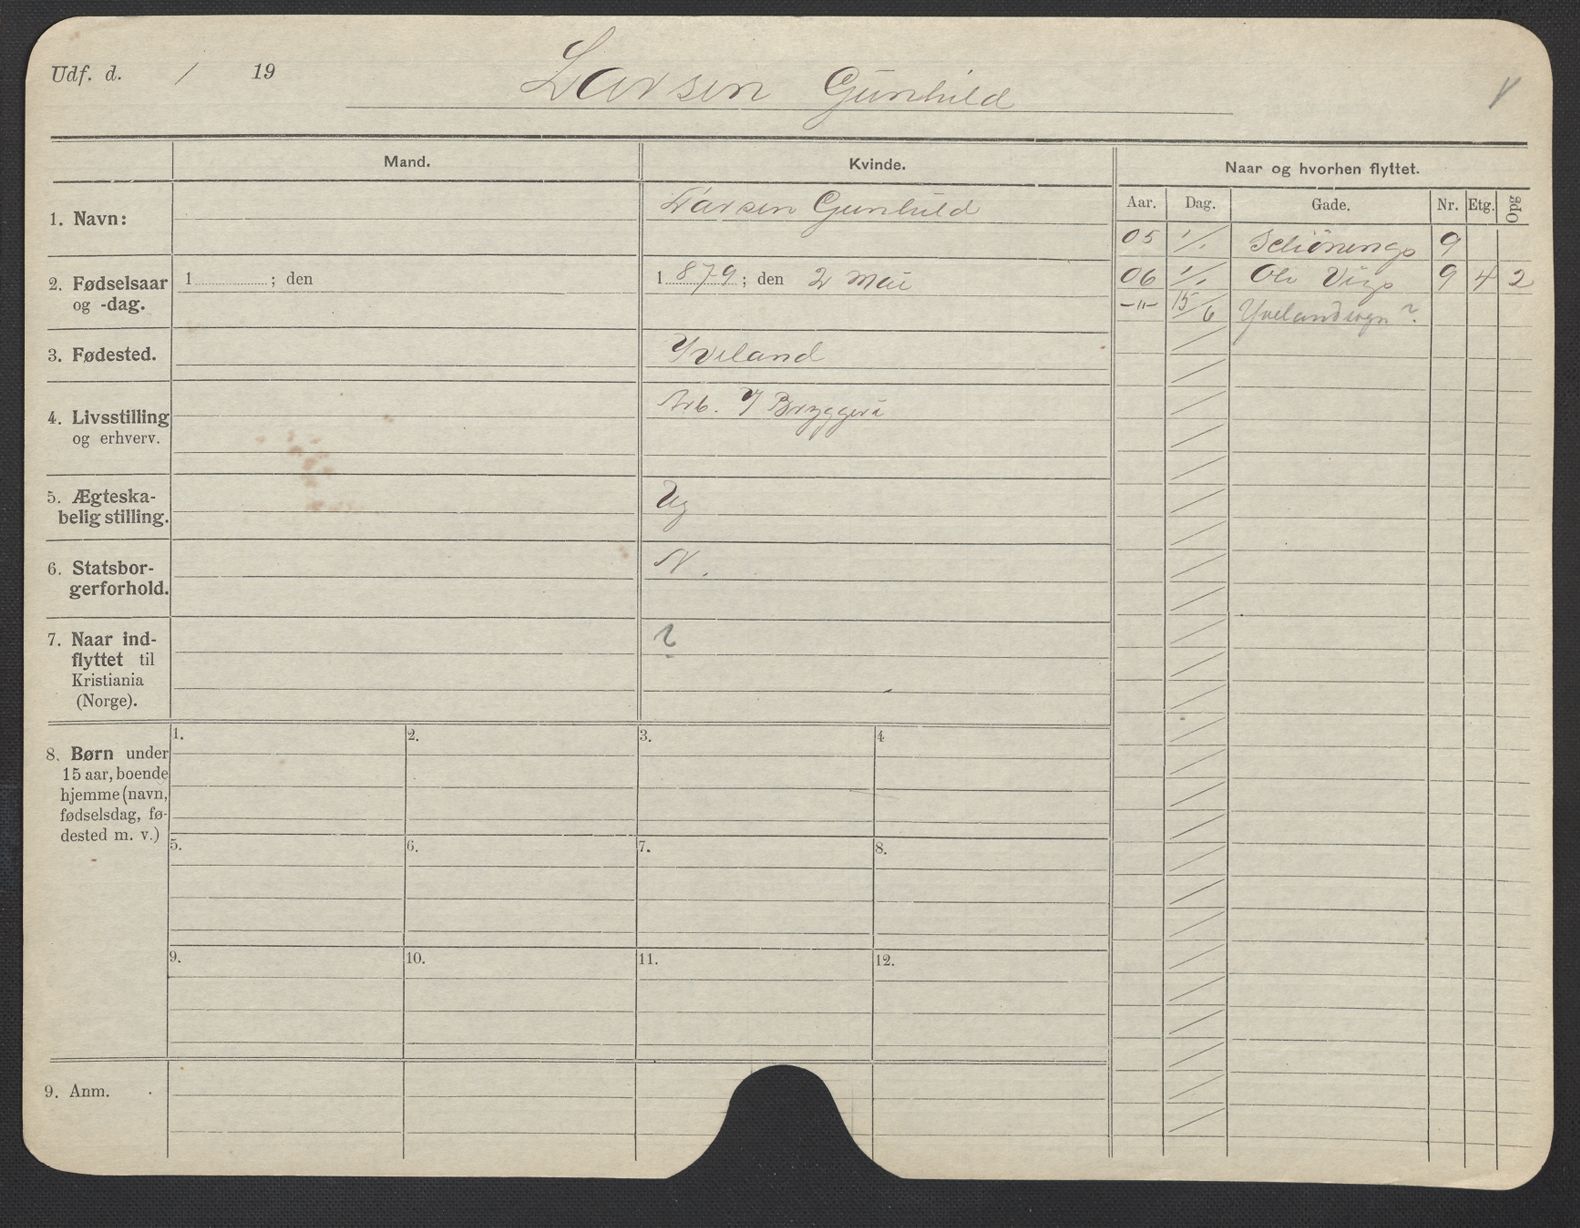 Udf. d. / 19
Larsen Gunhild
Mand.
Kvinde.
Naar og hvorhen flyttet.
Aar. Dag. Gade. Nr. Etg. Opg
1. Navn:
Larsen Gunhild
05 1/1 Schönings 9
2. Fødselsaar
og -dag.
1 ; den
1 879 ; den 2 Mai
06 1/1 Ole Vigs 9 4 2
-"- 15/6 Yvelandsogn ?
3. Fødested.
Yveland
4. Livsstilling
og erhverv.
Arb. I Bryggeri
5. Ægteska-
belig stilling.
Ug
6. Statsbor-
gerforhold.
N.
7. Naar ind-
flyttet til
Kristiania
(Norge).
?
8. Børn under
15 aar, boende
hjemme (navn,
fødselsdag, fø-
dested m. v.)
1. 2. 3. 4
5. 6. 7. 8.
9. 10. 11. 12.
9. Anm.